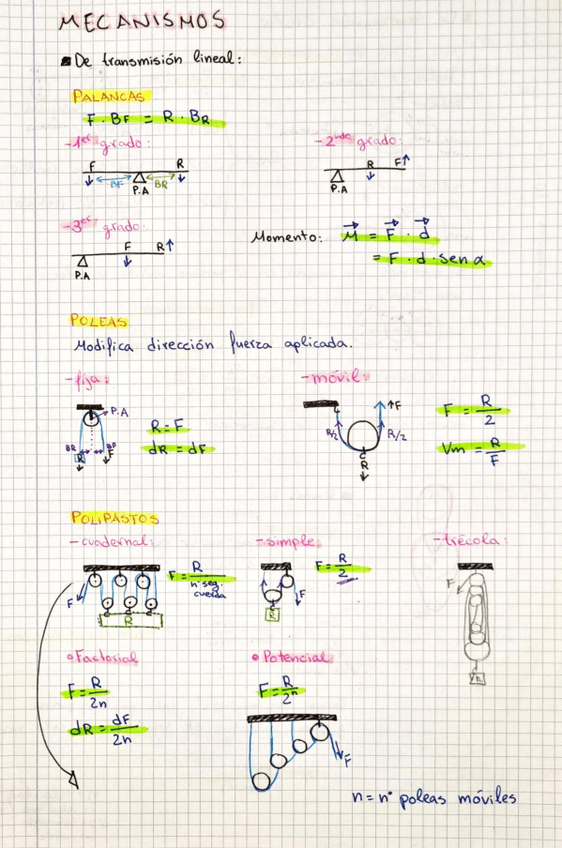 MECANISMOS
De transmisión lineal:
PALANCAS
F · BF = R · BR
-1er grado:
F R
BF BR
P.A
-2ndo grado:
R F
P.A
-3er grado:
F R
P.A
Momento: M = F · d
= F · d · sen α
POLEAS
Modifica dirección fuerza aplicada.
-fija:
P.A
BR BF
R F
R = F
dR = dF
-móvil:
F
R/2 R/2
R
F = R/2
Vm = R/F
POLIPASTOS
-cuadernal:
F
R
F = R/nº seg. cuerda
-simple:
F
R
F = R/2
-trécola:
F
R
Factorial
F = R/2n
dR = dF/2n
Potencial
F = R/2ⁿ
F
n = nº poleas móviles